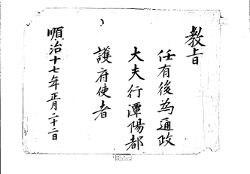 教旨
任有後為通政
大夫行潭陽都
護府使者
順治十七年正月二十二日